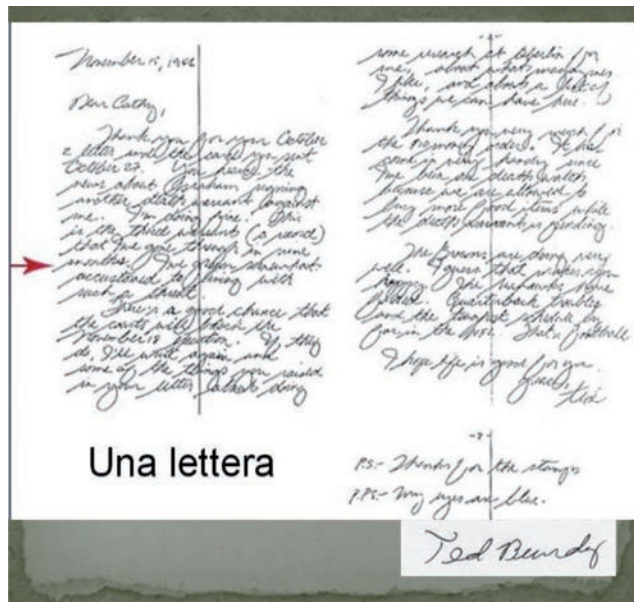 November 15, 1986
Dear Cathy,
Thank you for your October
2 letter and the card you sent
October 27. You heard the
news about Graham signing
another death warrant against
me. I'm doing fine. This
is the third warrant (a record)
that I've gone through in nine
months. I've grown somewhat
accustomed to living with
such a threat.
There's a good chance that
the courts will block the
November 18 execution. If they
do, I'll write again and
some of the things you raised
in your letter, like doing
-2-
some research at for
me, about what magazines
I like, and about a list of
things we can have here.
Thank you very much for
the money order. It has
come in very handy since
I've been on death watch
because we are allowed to
buy more food items while
the death warrant is pending.
The Browns are doing very
well. I guess that makes you
happy. The Seahawks have
folded. Quarterback troubles
and the toughest schedule by
far in the . That's football
I hope life is good for you.
peace,
ted
-3-
P.S. - Thanks for the stamps
P.P.S. - My eyes are blue.
Una lettera
Ted Bundy